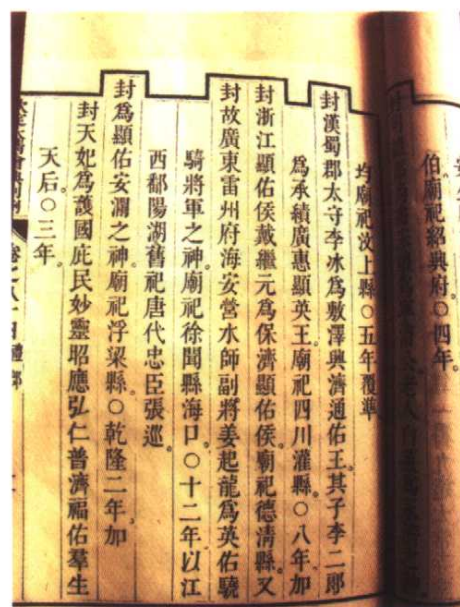 伯。廟祀紹興府。○四年。
均廟祀汶上縣。○五年覆準
封漢蜀郡太守李冰爲敷澤興濟通佑王其子李二郎
爲承績廣惠顯英王。廟祀四川灌縣。○八年加
封浙江顯佑侯戴繼元爲保濟顯佑侯。廟祀德清縣。又
封故廣東雷州府海安營水師副將姜起龍爲英佑驍
騎將軍之神。廟祀徐聞縣海口。○十二年以江
西鄱陽湖舊祀唐代忠臣張巡。
封爲顯佑安瀾之神。廟祀浮梁縣。○乾隆二年加
封天妃爲護國庇民妙靈昭應弘仁普濟福佑羣生
天后。○三年。
欽定大清會典則例